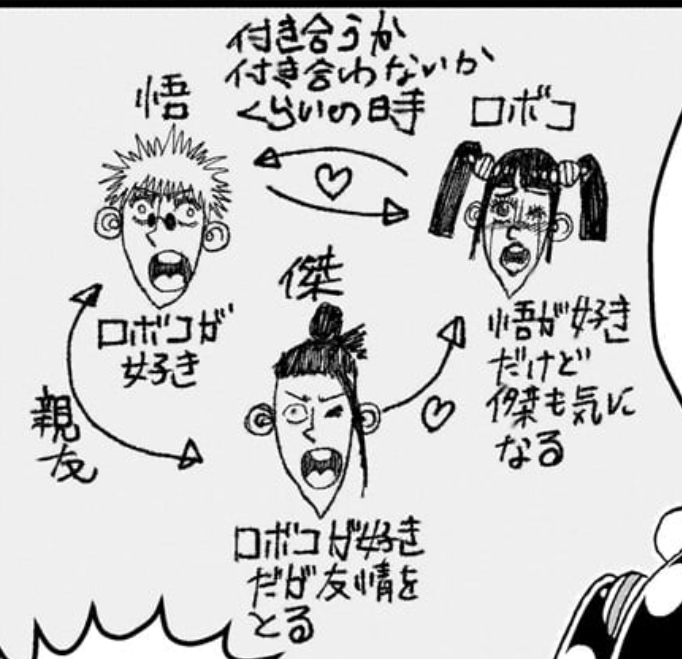 付き合うか
付き合わないか
くらいの日手
悟
ロボコ
ロボコが
好き
傑
悟が好き
だけど
傑も気に
なる
親
友
ロボコが好き
だが友情を
とる